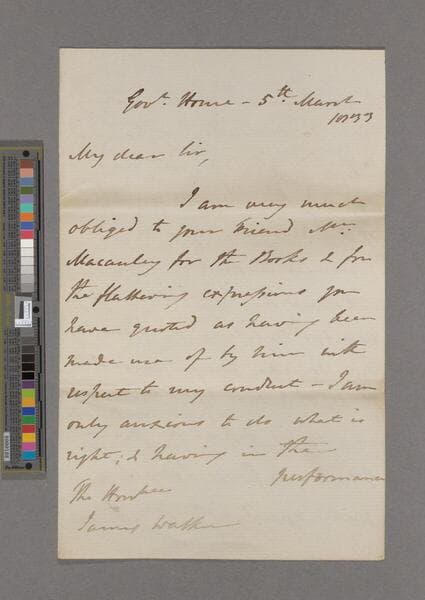 Govt. House - 5th March
1833
My dear Sir,
I am very much
obliged to your friend Mr.
Macauley for the Books & for
the flattering expressions you
have quoted as having been
made use of by him with
respect to my conduct - I am
only anxious to do what is
right; & having in the
performance
The Honble
James Walker